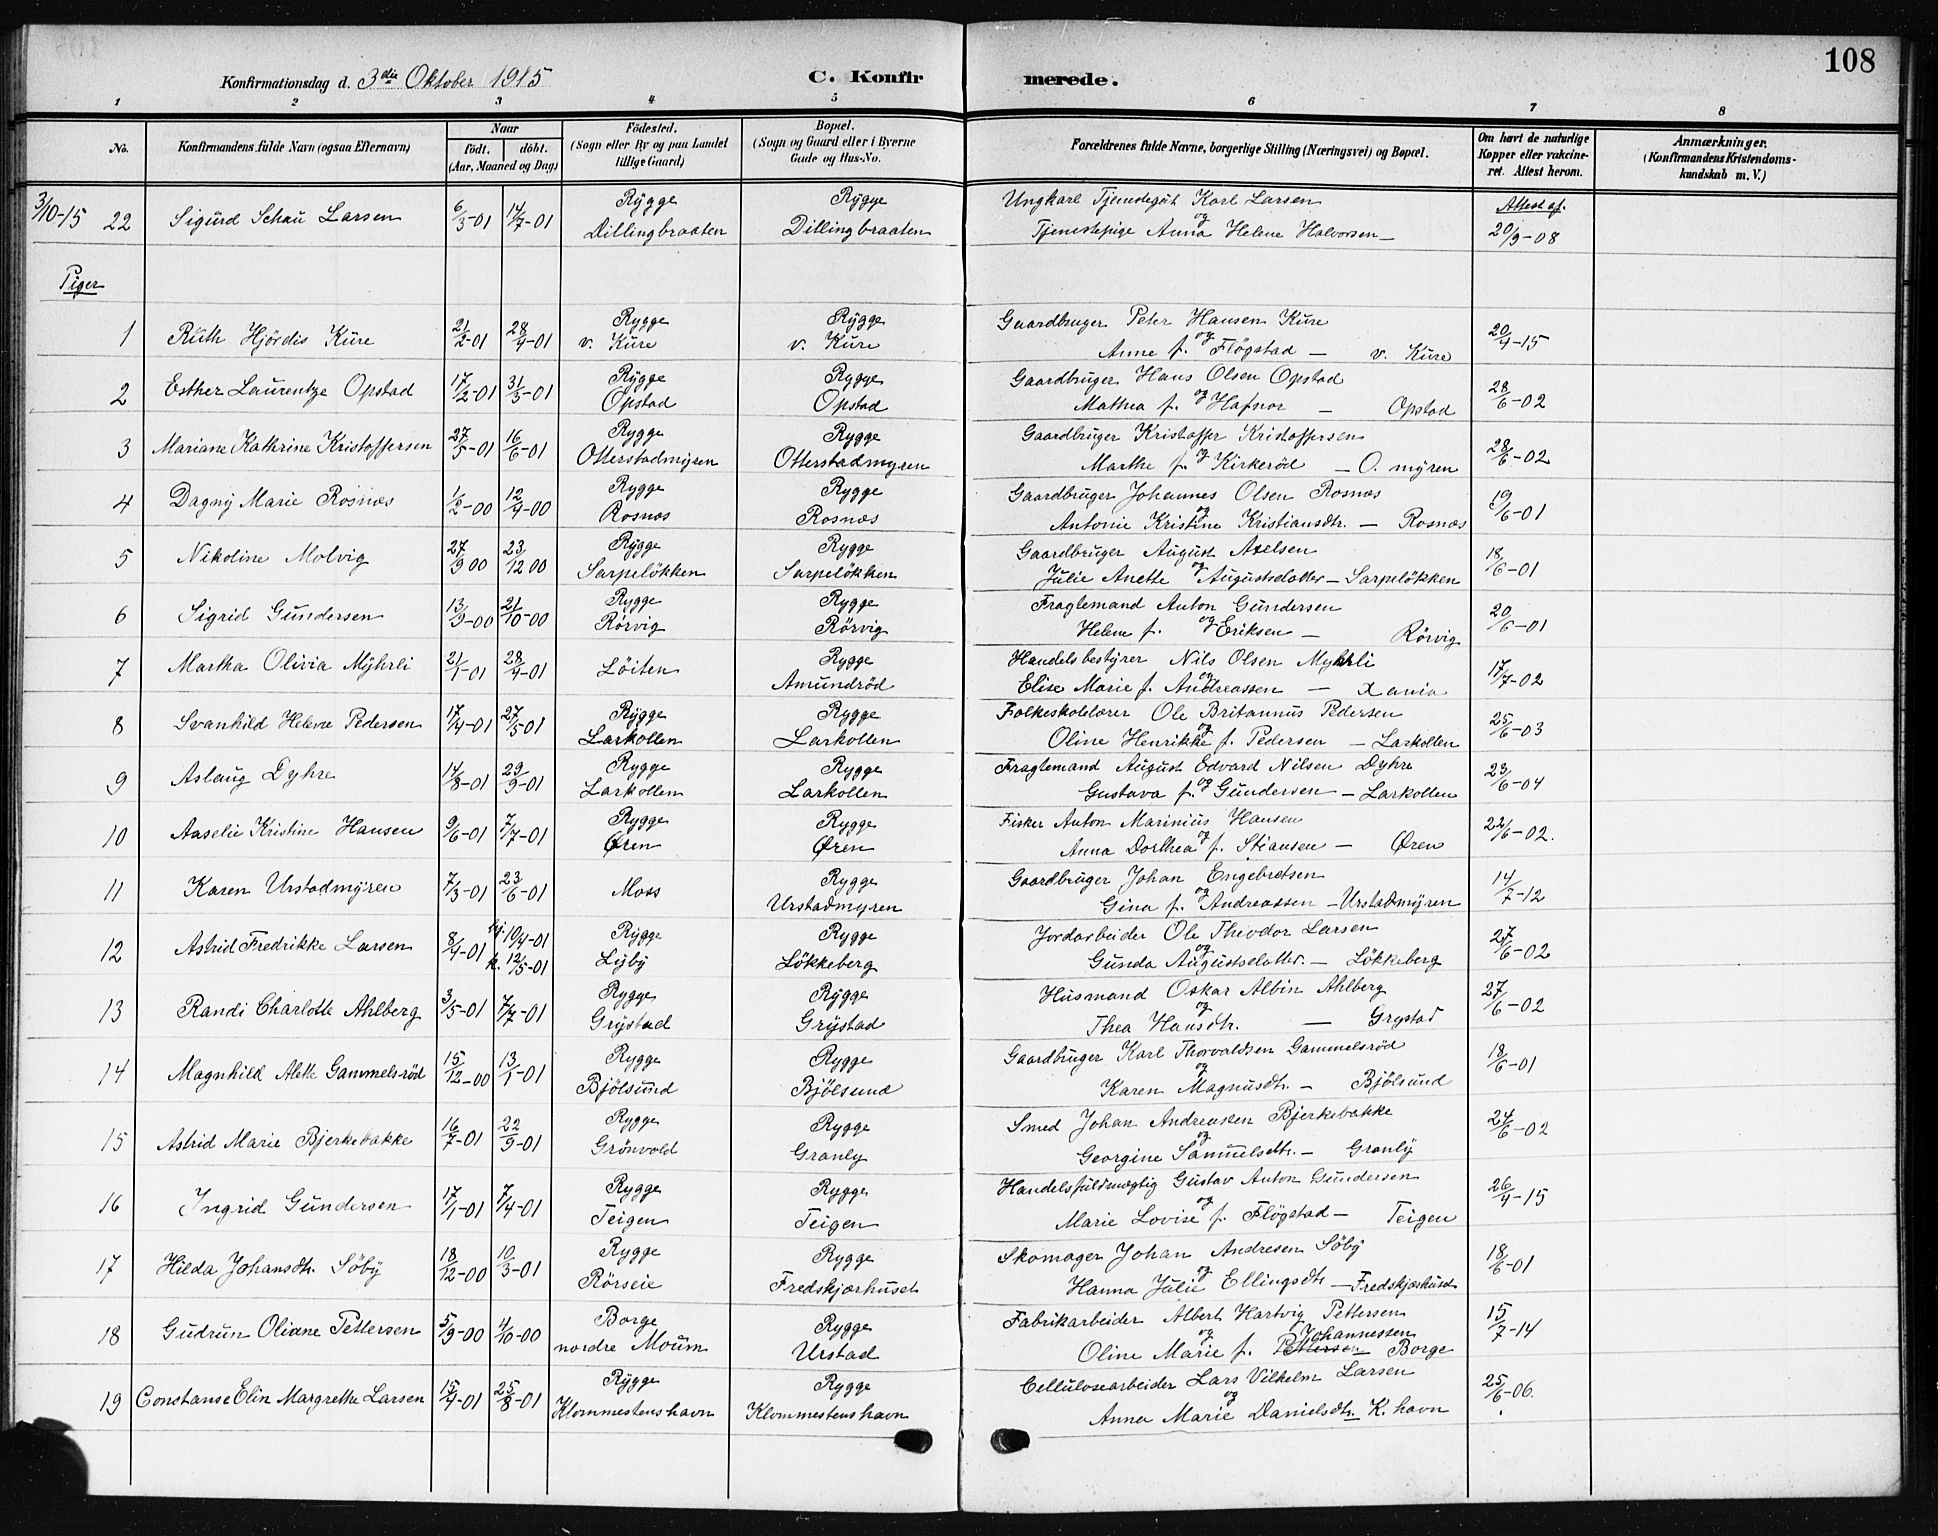 108
Konfirmationsdag d. 3die Oktober 1915 C. Konfirmerede.
1 2 3 4 5 6 7 8
No. Konfirmandens fulde Navn (ogsaa Efternavn) Naar født. døbt. (Aar, Maaned og Dag) Fødested. (Sogn eller By og paa Landet tillige Gaard) Bopæl. (Sogn og Gaard eller i Byerne Gade og Hus-No. Forældrenes fulde Navne, borgerlige Stilling (Næringsvei) og Bopæl. Om havt de naturlige Kopper eller vakcineret. Attest herom. Anmærkninger. (Konfirmandens Kristendomskundskab m. V.)
3/10-15 22 Sigurd Schau Larsen 6/3-01 14/7-01 Rygge Dillingbraaten Rygge Dillingbraaten Ungkarl Tjenestegut Karl Larsen og Tjenestepige Anna Helene Halvorsen – Attest af. 20/9-08
Piger
1 Ruth Hjördis Kure 21/2-01 28/4-01 Rygge v. Kure Rygge v. Kure Gaardbruger Peter Hansen Kure og Anne f. Flögstad – v. Kure 20/4-15
2 Esther Laurentze Opstad 17/2-01 31/3-01 Rygge Opstad Rygge Opstad Gaardbruger Hans Olsen Opstad og Mathea f. Hafnor – Opstad 28/6-02
3 Mariane Kathrine Kristoffersen 27/5-01 16/6-01 Rygge Otterstadmyren Rygge Otterstadmyren Gaardbruger Kristoffer Kristoffersen og Marthe f. Kirkeröd – O. myren 28/6-02
4 Dagny Marie Rosnæs 1/2-00 12/4-00 Rygge Rosnæs Rygge Rosnæs Gaardbruger Johannes Olsen Rosnæs og Antonie Kristine Kristiansdtr. – Rosnæs 19/6-01
5 Nikoline Molvig 27/9 00 23/12 00 Rygge Sarpelökken Rygge Sarpelökken Gaardbruger August Axelsen og Julie Anette Augustsdatter – Sarpelökken 18/6-01
6 Sigrid Gundersen 13/9-00 21/10-00 Rygge Rörvig Rygge Rörvig Fragtemand Anton Gundersen og Helene f. Eriksen – Rörvig 20/6-01
7 Martha Olivia Myhrli 21/1-01 28/4-01 Löiten Rygge Amundröd Handelsbestyrer Nils Olsen Myhrli og Elise Marie f. Andreassen – Xania 17/7-02
8 Svanhild Helene Pedersen 17/4-01 27/5-01 Rygge Larkollen Rygge Larkollen Folkeskolelærer Ole Britannus Pedersen og Oline Henrikke f. Pedersen – Larkollen 25/6-03
9 Aslaug Dyhre 14/8-01 29/9-01 Rygge Larkollen Rygge Larkollen Fragtemand August Edvard Nilsen Dyhre og Gustava f. Gundersen – Larkollen 23/6-04
10 Aaselie Kristine Hansen 9/6-01 7/7-01 Rygge Øren Rygge Øren Fisker Anton Marinius Hansen og Anna Dorthea f. Stiansen – Øren 22/6-02.
11 Karen Urstadmyren 7/3-01 23/6-01 Moss Rygge Urstadmyren Gaardbruger Johan Engebretsen og Gina f. Andreassen – Urstadmyren 14/7-12
12 Astrid Fredrikke Larsen 8/4-01 hj. 19/4-01 k. 12/5-01 Rygge Lyby Rygge Lökkeberg Jordarbeider Ole Theodor Larsen og Gunda Augustsdatter. – Lökkeberg 27/6-02
13 Randi Charlotte Ahlberg 3/5-01 7/7-01 Rygge Grystad Rygge Grystad Husmand Oskar Albin Ahlberg og Thea Hansdtr. – Grystad 27/6-02
14 Magnhild Alette Gammelsröd 15/12-00 13/1-01 Rygge Bjölsund Rygge Bjölsund Gaardbruger Karl Thorvaldsen Gammelsröd og Karen Magnusdtr. – Bjölsund 18/6-01
15 Astrid Marie Bjerkebakke 16/7-01 22/9-01 Rygge Grönvold Rygge Granly Smed Johan Andreasen Bjerkebakke og Georgine Samuelsdtr. – Granly 24/6-02
16 Ingrid Gundersen 17/1-01 7/4-01 Rygge Teigen Rygge Teigen Handelsfuldmægtig Gustav Anton Gundersen og Marie Lovise f. Flögstad – Teigen 26/4-15
17 Hilda Johansdtr. Söby 18/12-00 10/3-01 Rygge Rörseie Rygge Fredskjærhuset Skomager Johan Andresen Söby og Hanna Julie Ellingsdtr – Fredskjærhuset 18/6-01
18 Gudrun Oliane Pettersen 5/9-00 4/10-00 Borge nordre Moum Rygge Urstad Fabrikarbeider Albert Hartvig Pettersen og Oline Marie f. Pettersen Johannessen Borge 15/7-14
19 Constanse Elin Margrethe Larsen 15/4-01 25/8-01 Rygge Klommestenshavn Rygge Klommestenshavn Cellulosearbeider Lars Vilhelm Larsen og Anna Marie Danielsdtr. – K. havn 25/6-06.